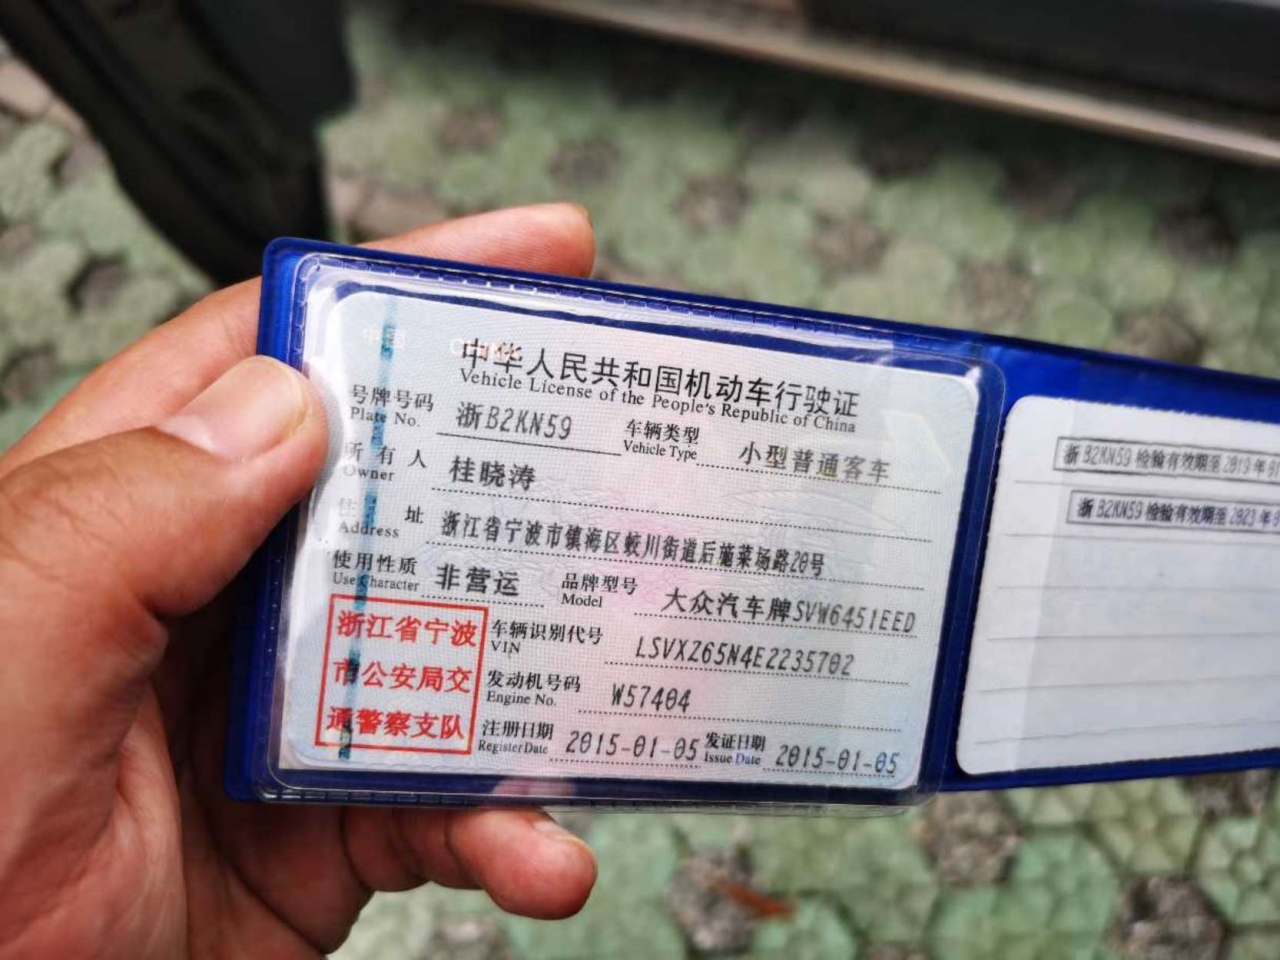 中国 CHINA
中华人民共和国机动车行驶证
Vehicle License of the People's Republic of China
号牌号码 浙B2KN59 车辆类型 小型普通客车
Plate No. Vehicle Type
所有人 桂晓涛
Owner
住址 浙江省宁波市镇海区蛟川街道后施菜场路20号
Address
使用性质 非营运 品牌型号 大众汽车牌SVW6451EED
Use Character Model
浙江省宁波
市公安局交
通警察支队
车辆识别代号 LSVXZ65N4E2235702
VIN
发动机号码 W57404
Engine No.
注册日期 2015-01-05 发证日期 2015-01-05
Register Date Issue Date
浙B2KN59检验有效期至2019年
浙B2KN59检验有效期至2023年